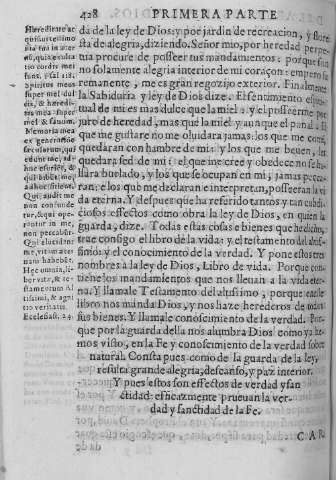 428 PRIMERA PARTE
da de la ley de Dios: y por jardin de recreacion, y floresta
de alegria, diziendo. Señor mio, por heredad perpetua
procure de posseer tus mandamientos: porque son
no solamente alegria interior de mi coraçon: empero su
remanente, me es gran regozijo exterior. Finalmente
la Sabiduria y ley de Dios dize. El sentimiento espiritual
de mi es mas dulce que la miel: y el posseerme por
juro de heredad, mas que la miel y aun que el panal. Los
que me gustare no me oluidara jamas: los que me comē,
quedaran con hambre de mi: y los que me beuen, les
quedara sed de mi: el que me cree y obedece no se hallara
burlado, y los que se ocupan en mi, jamas pecaran:
e los que me declaran e interpretan, posseeran la vida
eterna. Y despues que ha referido tantos y tan cubdiciosos
effectos como obra la ley de Dios, en quien la
guarda, dize. Todas estas cosas e bienes que he dicho,
trae consigo el libro de la vida: y el testamento del altissimo
y el conocimiento de la verdad. Y pone estos tres
nombres a la ley de Dios, Libro de vida. Porque contiene
los mandamientos que nos lleuan a la vida eterna.
Y llamale Testamento del altissimo, porque en este
libro nos manda Dios, y nos haze herederos de todos
sus bienes. Y llamale conoscimiento de la verdad. Porque
por la guarda della nos alumbra Dios como ya hemos
visto, en la Fe y conoscimiento de la verdad sobre
natural. Consta pues como de la guarda de la ley,
resulta grande alegria, descanso, y paz interior.
Y pues estos son effectos de verdad y san
ctidad: efficazmente prueuan la ver-
dad y sanctidad de la Fe.
CAR
Hereditate acquisiui
testimonia tua in æternū,
quia exultatio cordis mei
sunt. psal 118.
Spiritus meus
super mel dulcis,
& hæreditas mea
super mel & fauum.
Memoria mea
in generatione
seculorum,
qui edunt me, adhuc
esuriēt, & qui
bibunt me, adhuc sitient.
Qui audit me
non confundetur,
& qui operantur
in me, non peccabunt.
Qui elucidant
me, vitam æternam
habebūt.
Hęc omnia, liber
vitæ, & testamentum
altissimi, & agnitio
veritatis.
Ecclesiast. 24.